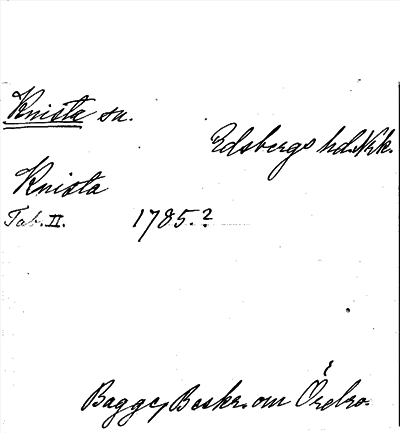 Knista sn.
Edsbergs hd. Nrk.
Knista
Tab. II. 1785.?
Bagge, Beskr. om Örebro.